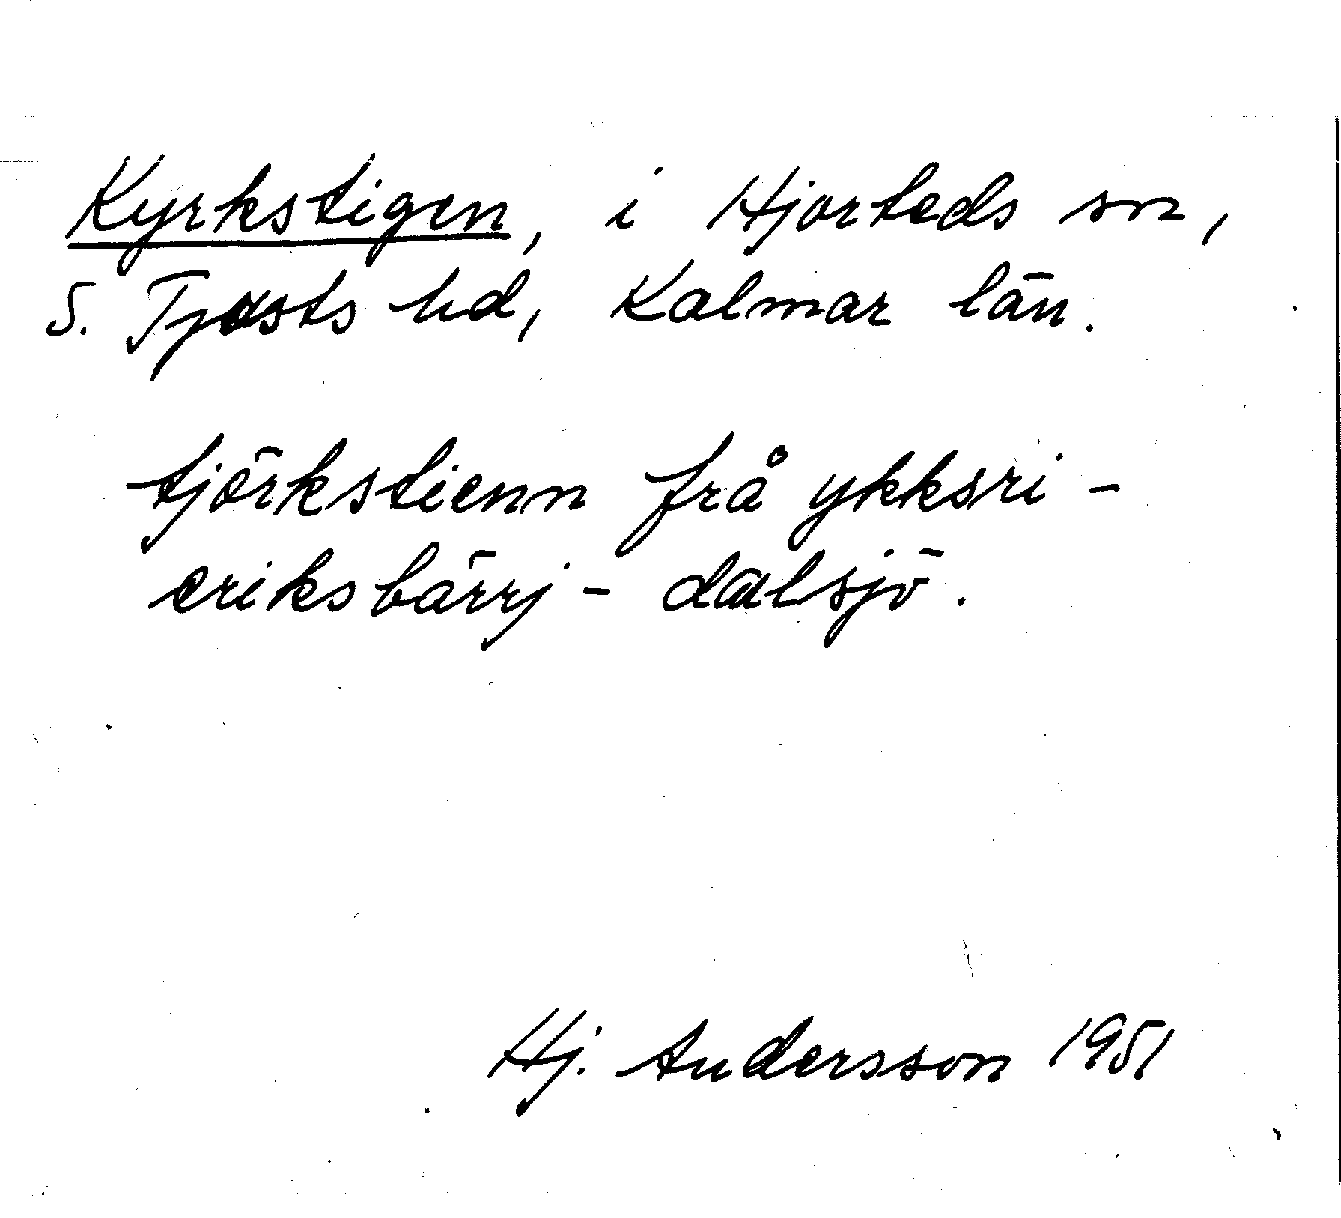 Kyrkstigen, i Hjorteds sn,
S. Tjusts hd, Kalmar län.
tjörkstienn frå ykksri -
eriksbärrj - dalsjö.
Hj. Andersson 1951